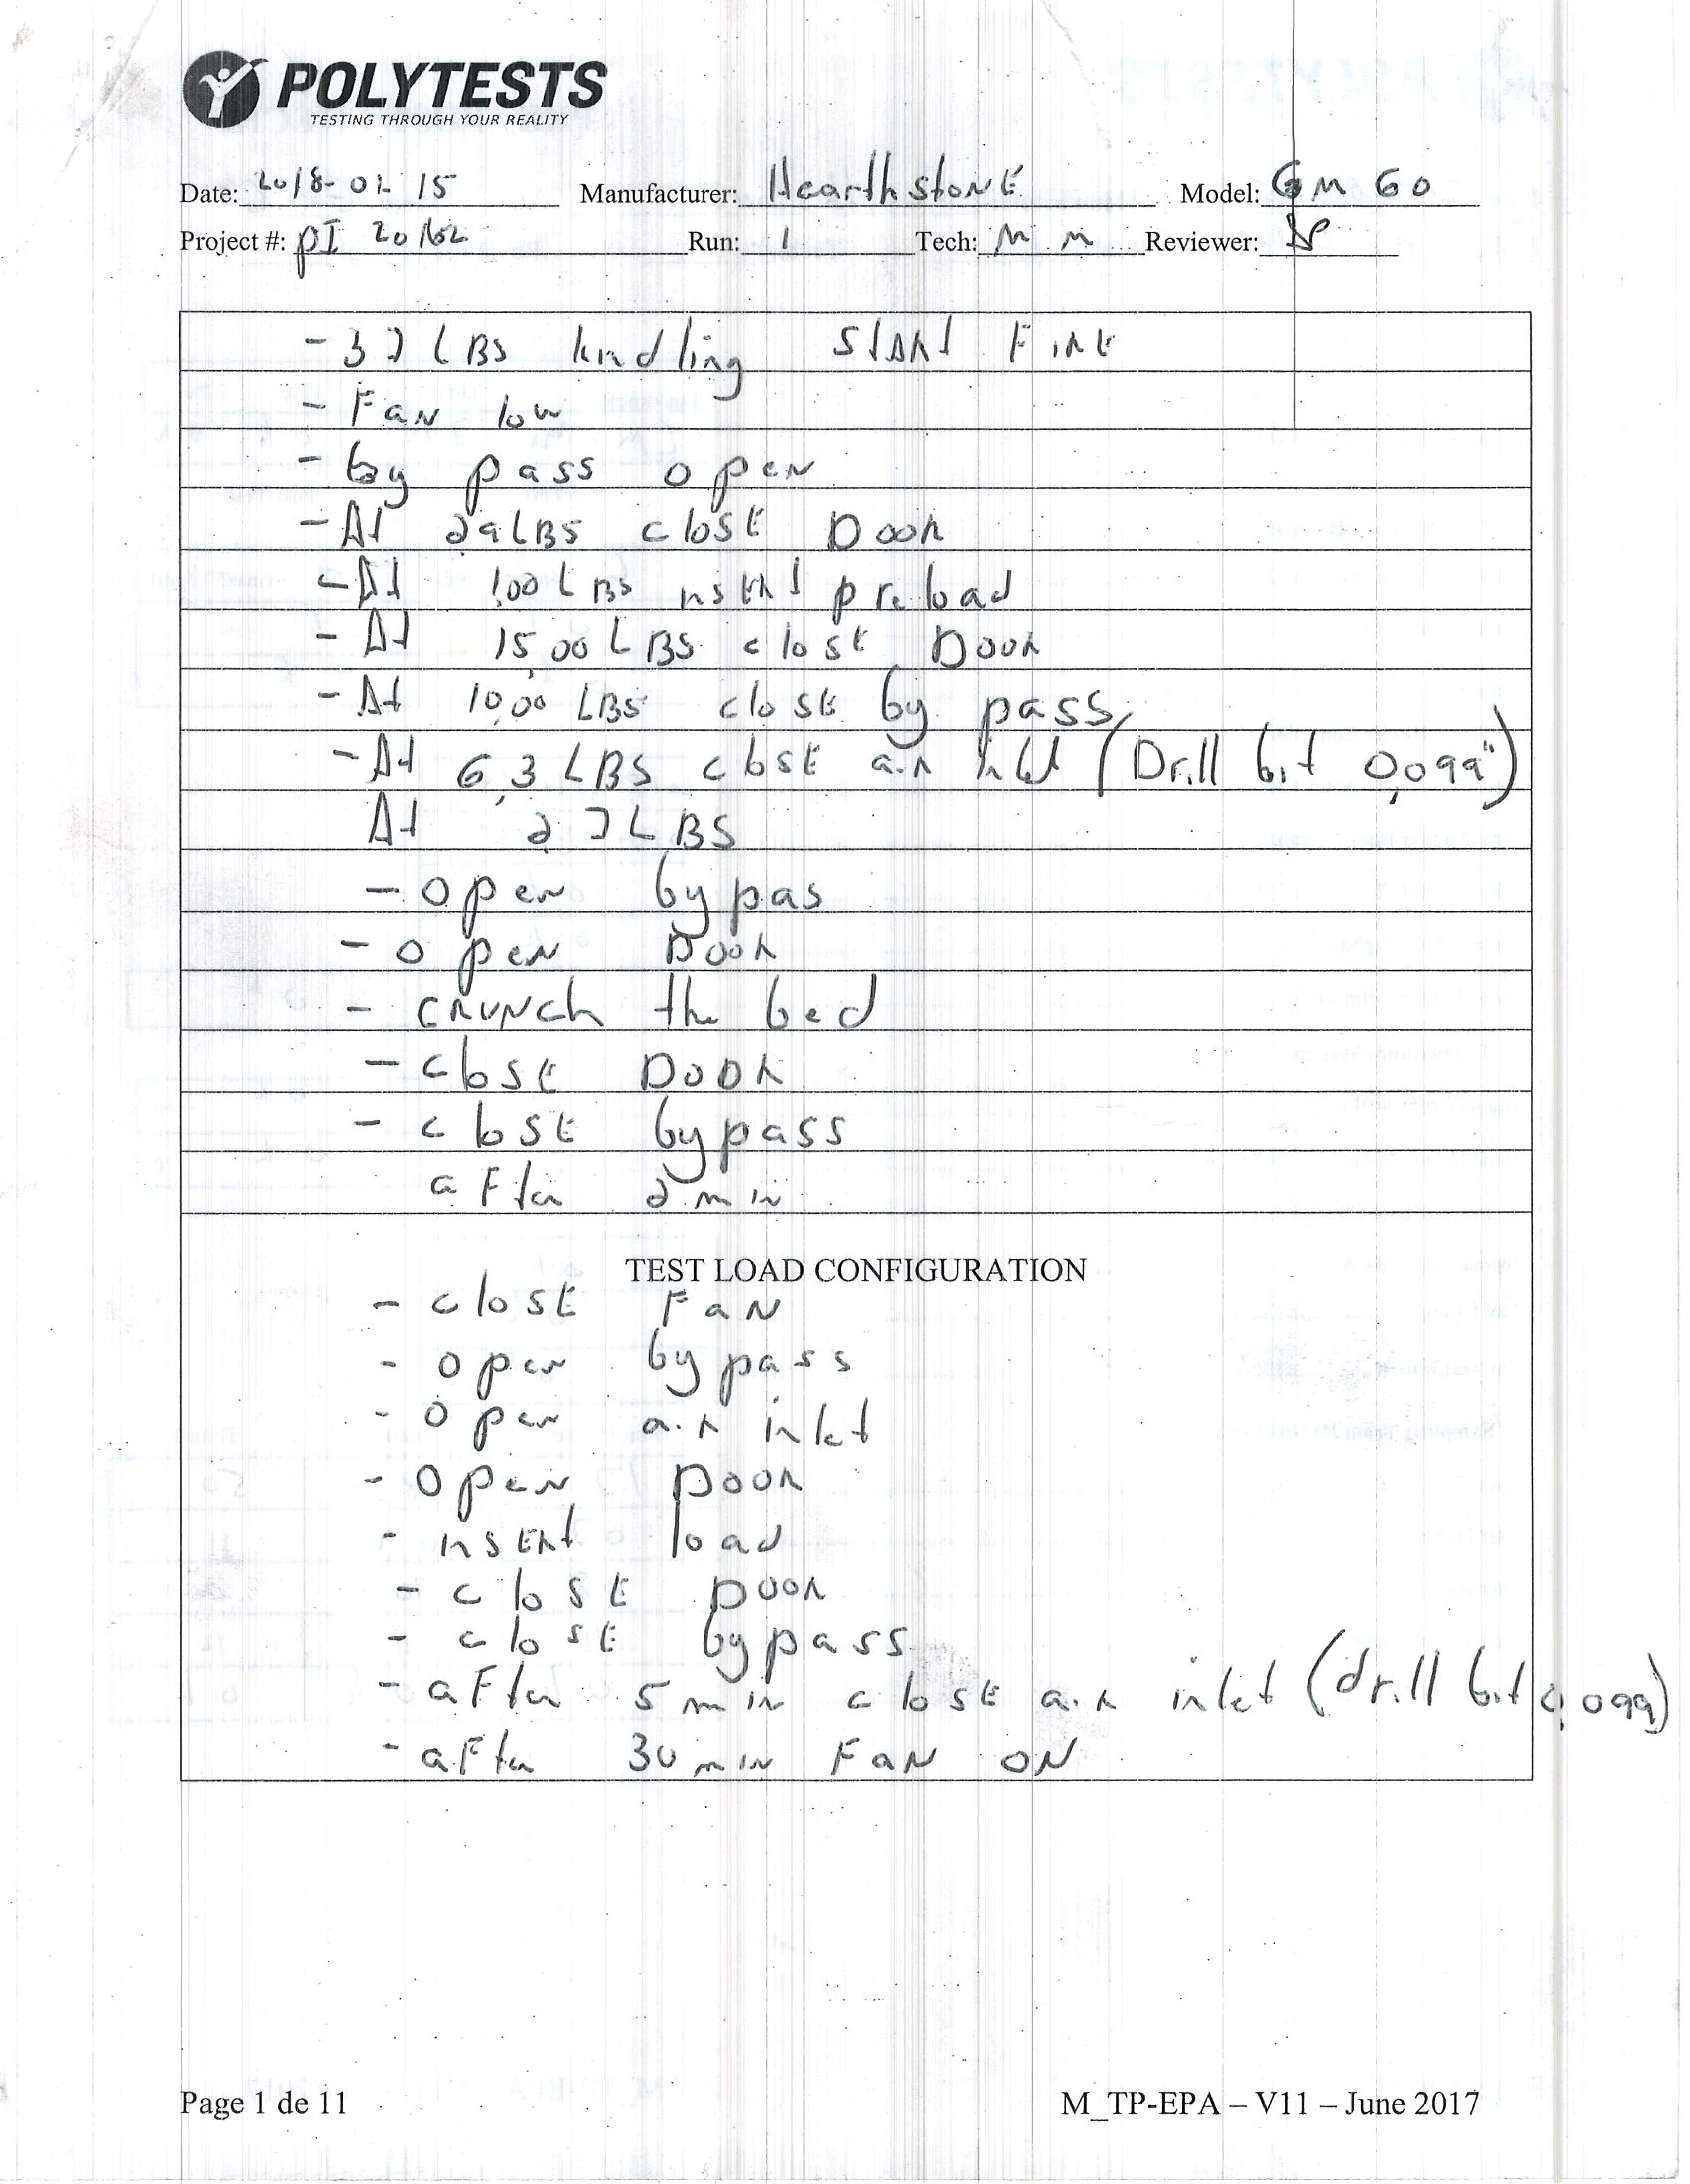 POLYTESTS
TESTING THROUGH YOUR REALITY
Date: 2018-01-15 Manufacturer: HearthstonE Model: GM 60
Project #: PI 20162 Run: 1 Tech: M M Reviewer:
- 37 LBS kindling START FIRE
- Fan low
- by pass open
- At 29 LBS close Door
- At 1,00 LBS insert preload
- At 15,00 LBS close Door
- At 10,00 LBS close by pass
- At 6,3 LBS close air inlet (Drill bit 0,099")
At 27 LBS
- open bypas
- open Door
- CRUNCh the bed
- close Door
- close bypass
after 2 min
TEST LOAD CONFIGURATION
- close FaN
- open bypass
- open air inlet
- open Door
- insert load
- close Door
- close bypass
- after 5 min close air inlet (drill bit 0,099)
- after 30 min FaN ON
Page 1 de 11 M_TP-EPA – V11 – June 2017